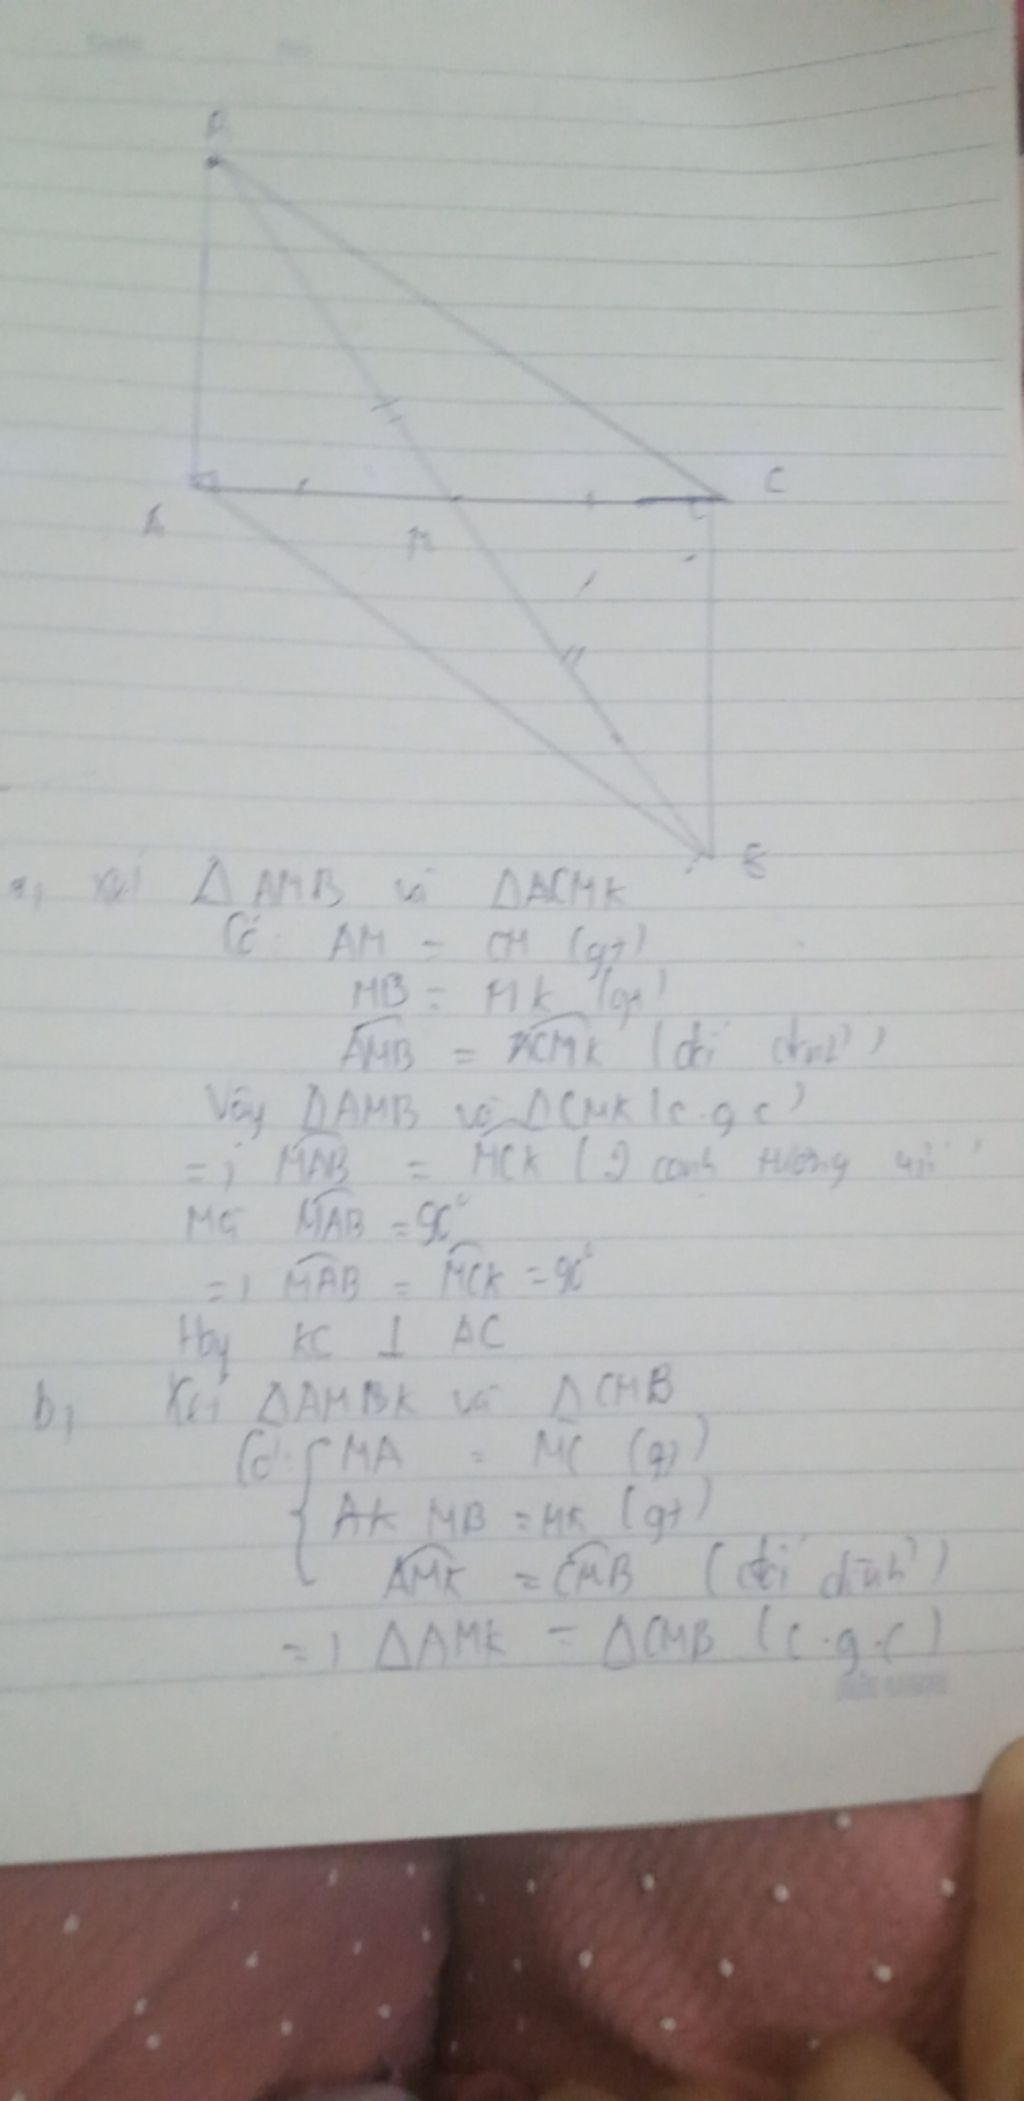 B
C
A
M
a, Xét △ AMB và △ACMK
Có: AM = CM (gt)
MB = MK (gt)
AMB = CMK (đối đỉnh)
Vậy △AMB và △CMK (c.g.c)
=) MAB = MCK (2 cạnh tương ứng)
Mà MAB = 90°
=) MAB = MCK = 90°
Hay KC ⊥ AC
b, Xét △AMBK và △CMB
Có: MA = MC (gt)
AK MB = MK (gt)
AMK = CMB (đối đỉnh)
=) △AMK = △CMB (c.g.c)